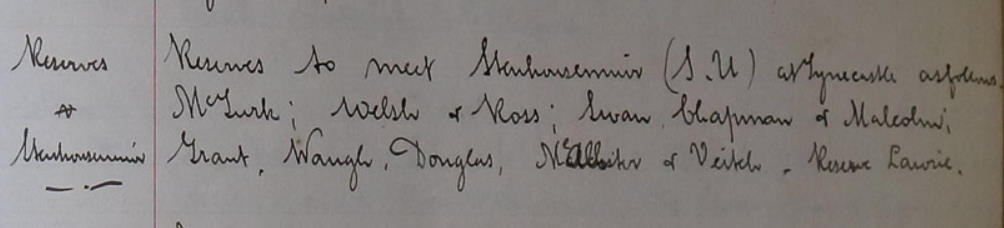 Reserves Reserves to meet Stenhousemuir (S.U) at Tynecastle as follows.
v McTurk; Welsh & Ross; Swan, Chapman & Malcolm;
Stenhousemuir Grant, Waugh, Douglas, McAllister & Veitch. Reserve Lawrie.